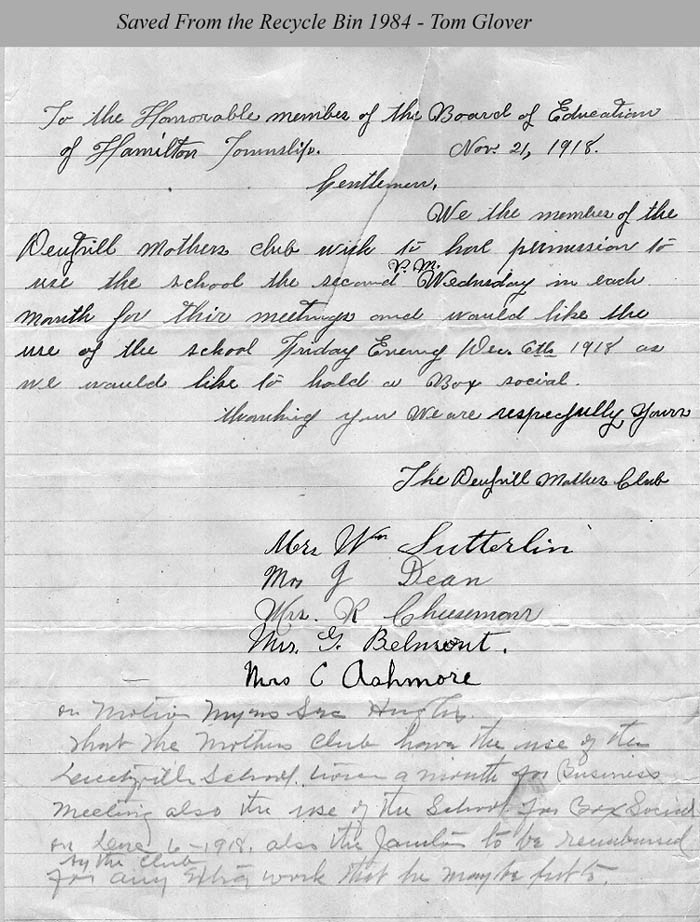 Saved From the Recycle Bin 1984 - Tom Glover
To the Honorable member of the Board of Education
of Hamilton Township. Nov. 21, 1918.
Gentlemen,
We the member of the
mothers club wish to have permission to
P.M.
use the school the second Wednesday in each
month for their meetings and would like the
use of the school Friday Evening Dec. 6th 1918 as
we would like to hold a Box social.
thanking you We are respecfully Yours
The Mother Club
Mrs Wm Sutterlin
Mrs J Dean
Mrs. R Cheesman
Mrs. G. Belmont.
Mrs C Ashmore
on motion Myers Sec Hughes
that the Mothers Club have the use of the
School. twice a month for Business
meeting also the use of the School for Box Social
on Dec 6-1918. also the Janitor to be reimbursed
by the Club
for any Extra work that he may be put to.